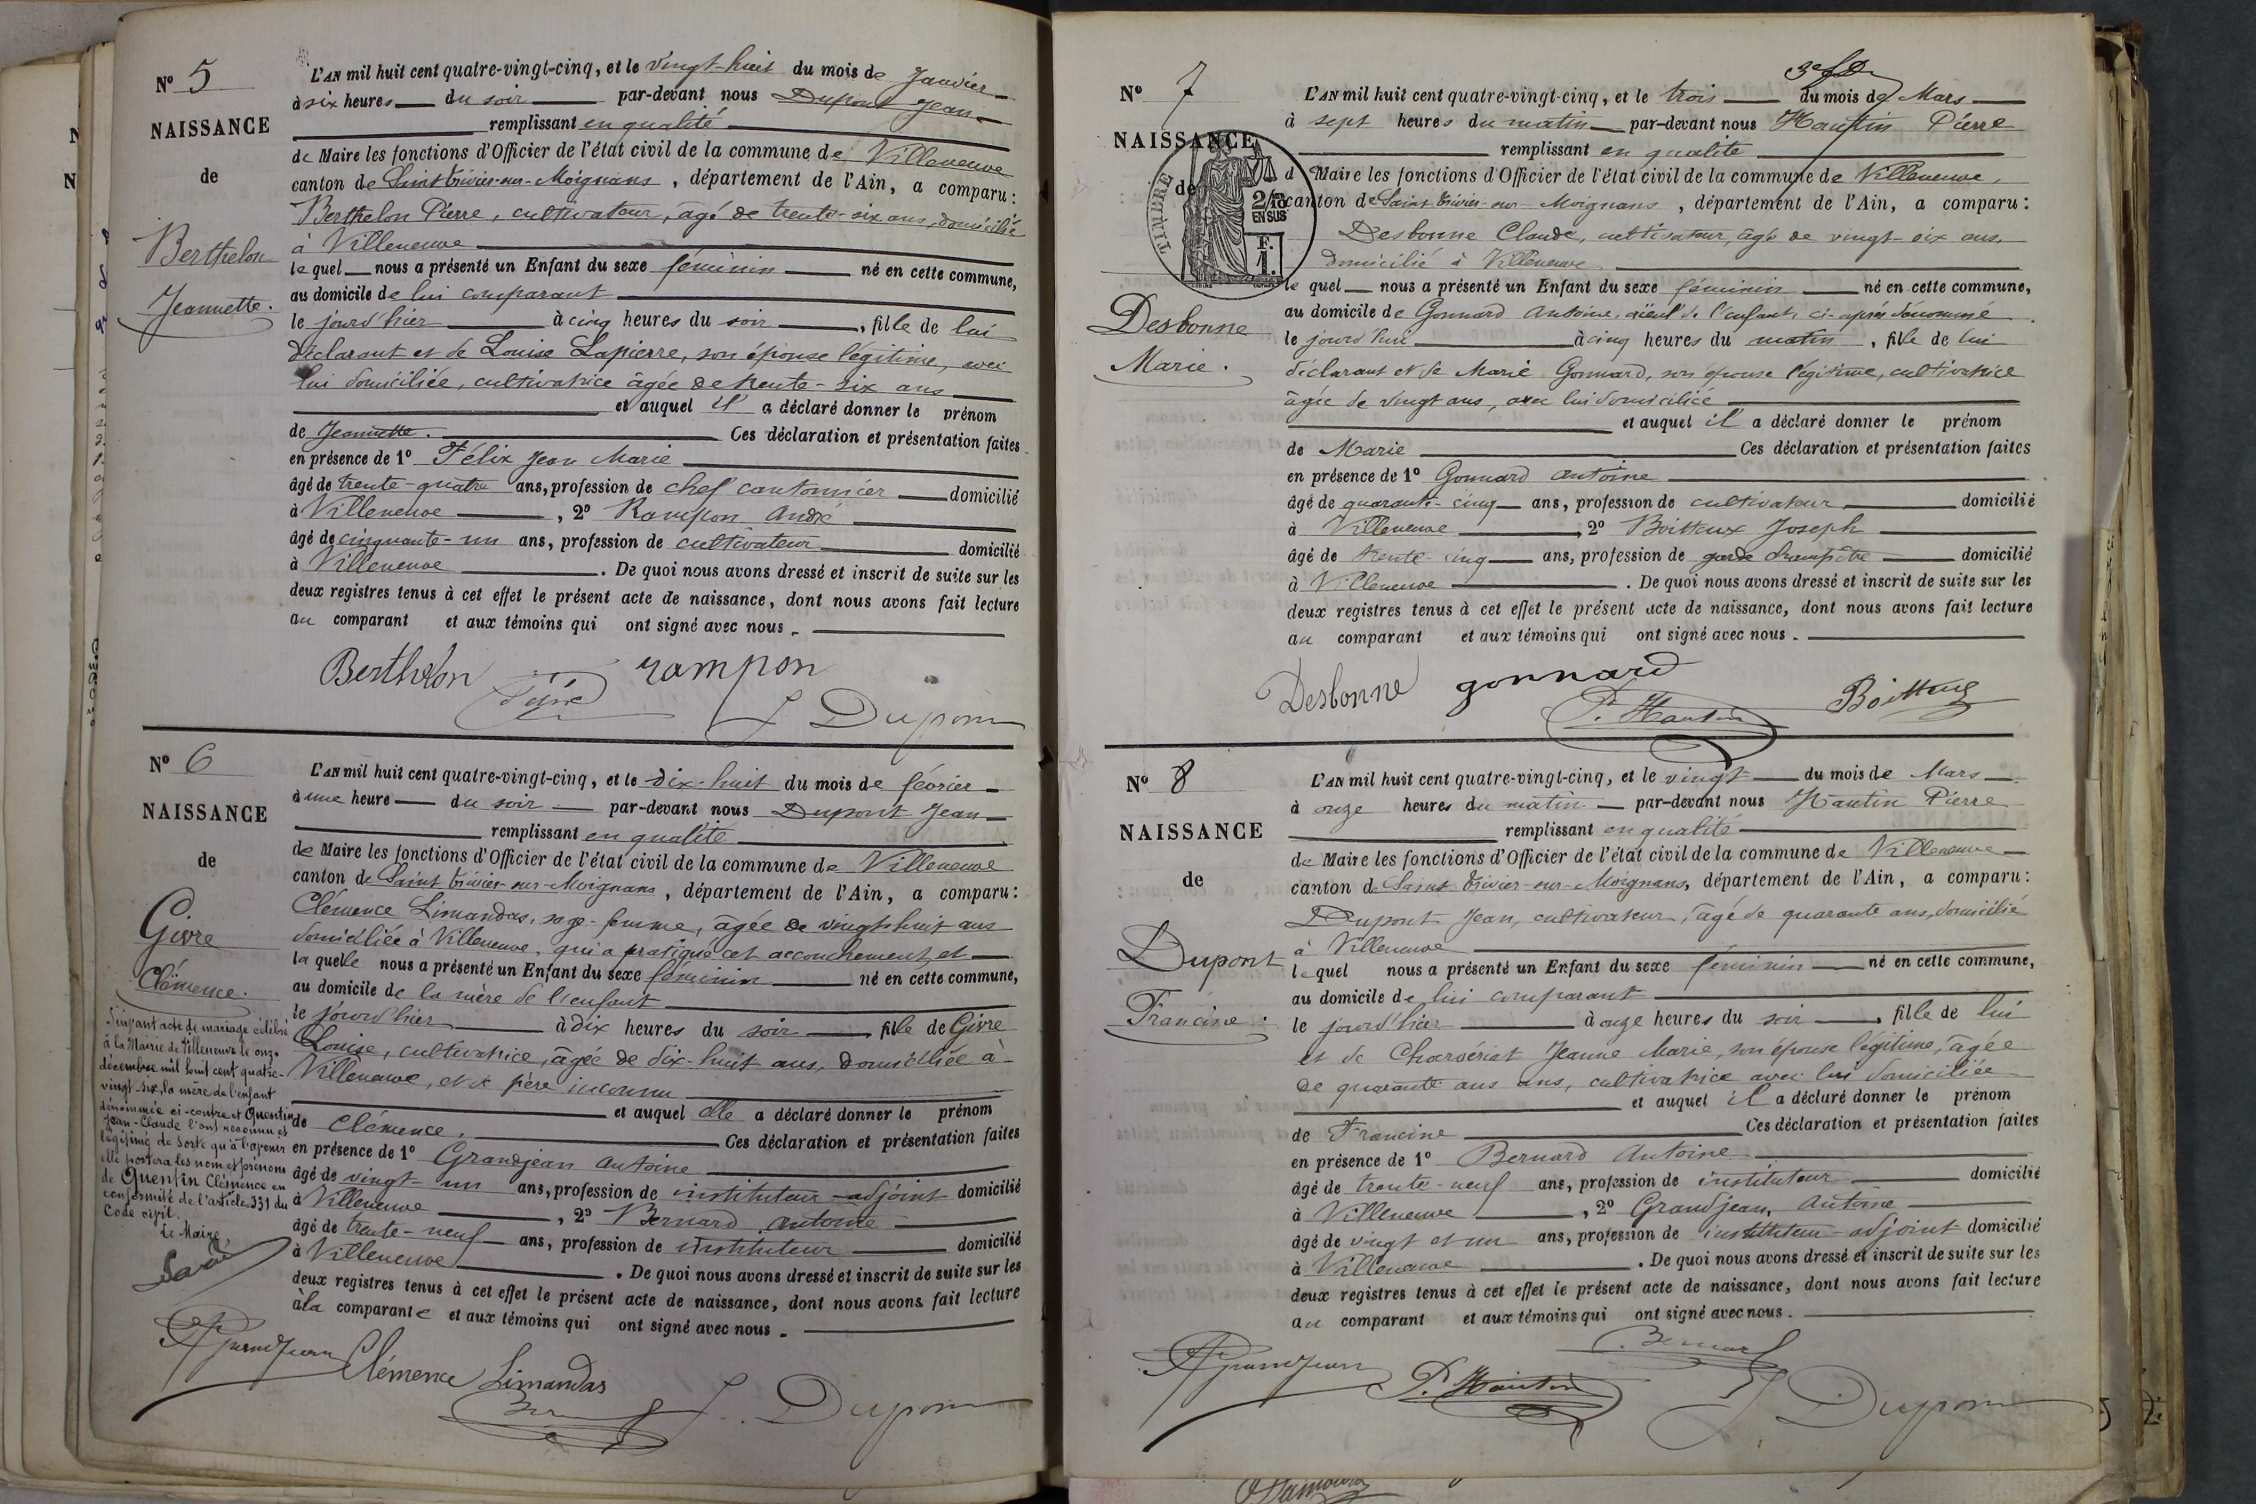 N° 5
NAISSANCE
de
Berthelon
Jeannette.
L'AN mil huit cent quatre-vingt-cinq, et le vingt-huit du mois de Janvier
à six heures du soir par-devant nous Dupont Jean
remplissant en qualité
de Maire les fonctions d'Officier de l'état civil de la commune de Villeneuve
canton de Saint Trivier-sur-Moignans, département de l'Ain, a comparu :
Berthelon Pierre, cultivateur, âgé de trente-six ans, domicilié
à Villeneuve
le quel nous a présenté un Enfant du sexe féminin né en cette commune,
au domicile de lui comparant
le jourd'hier à cinq heures du soir, fille de lui
déclarant et de Louise Lapierre, son épouse légitime, avec
lui domiciliée, cultivatrice âgée de trente-six ans
et auquel il a déclaré donner le prénom
de Jeannette. Ces déclaration et présentation faites
en présence de 1° Félix Jean Marie
âgé de trente-quatre ans, profession de chef cantonnier domicilié
à Villeneuve, 2° Rampon André
âgé de cinquante-un ans, profession de cultivateur domicilié
à Villeneuve. De quoi nous avons dressé et inscrit de suite sur les
deux registres tenus à cet effet le présent acte de naissance, dont nous avons fait lecture
au comparant et aux témoins qui ont signé avec nous.
Berthelon rampon
J Dupont
N° 6
NAISSANCE
de
Givre
Clémence.
Suivant acte de mariage célébré
à la Mairie de Villeneuve le onze
décembre mil huit cent quatre-
vingt-six, la mère de l'enfant
dénommée ci-contre et Quentin
Jean-Claude l'ont reconnu et
légitimé de sorte qu'à l'avenir
elle portera les nom et prénom
de Quentin Clémence en
conformité de l'article 331 du
Code civil.
Le Maire,
L'AN mil huit cent quatre-vingt-cinq, et le dix-huit du mois de février
à une heure du soir par-devant nous Dupont Jean
remplissant en qualité
de Maire les fonctions d'Officier de l'état civil de la commune de Villeneuve
canton de Saint Trivier-sur-Moignans, département de l'Ain, a comparu :
Clémence Limandas, sage-femme, âgée de vingt-huit ans
domiciliée à Villeneuve, qui a pratiqué cet accouchement et
la quelle nous a présenté un Enfant du sexe féminin né en cette commune,
au domicile de la mère de l'enfant
le jourd'hier à dix heures du soir, fille de Givre
Louise, cultivatrice, âgée de dix-huit ans, domiciliée à
Villeneuve, et de père inconnu
et auquel elle a déclaré donner le prénom
de Clémence. Ces déclaration et présentation faites
en présence de 1° Grandjean Antoine
âgé de vingt un ans, profession de instituteur-adjoint domicilié
à Villeneuve, 2° Bernard Antoine
âgé de trente-neuf ans, profession de instituteur domicilié
à Villeneuve. De quoi nous avons dressé et inscrit de suite sur les
deux registres tenus à cet effet le présent acte de naissance, dont nous avons fait lecture
à la comparante et aux témoins qui ont signé avec nous.
AGrandjean Clémence Limandas
J. Dupont
N° 7
NAISSANCE
de
TIMBRE
2/10
EN SUS
F.
1.
Desbonne
Marie.
L'AN mil huit cent quatre-vingt-cinq, et le trois du mois de Mars
à sept heures du matin par-devant nous Hautin Pierre
remplissant en qualité
d Maire les fonctions d'Officier de l'état civil de la commune de Villeneuve,
canton de Saint Trivier-sur-Moignans, département de l'Ain, a comparu :
Desbonne Claude, cultivateur, âgé de vingt-six ans,
domicilié à Villeneuve
le quel nous a présenté un Enfant du sexe féminin né en cette commune,
au domicile de Gonnard Antoine, aïeul de l'enfant ci-après dénommé
le jourd'hui à cinq heures du matin, fille de lui
déclarant et de Marie Gonnard, son épouse légitime, cultivatrice
âgée de vingt ans, avec lui domiciliée
et auquel il a déclaré donner le prénom
de Marie Ces déclaration et présentation faites
en présence de 1° Gonnard Antoine
âgé de quarante-cinq ans, profession de cultivateur domicilié
à Villeneuve, 2° Boitteux Joseph
âgé de trente-cinq ans, profession de garde champêtre domicilié
à Villeneuve. De quoi nous avons dressé et inscrit de suite sur les
deux registres tenus à cet effet le présent acte de naissance, dont nous avons fait lecture
au comparant et aux témoins qui ont signé avec nous.
Desbonne gonnard
P. Hautin Boitteux
N° 8
NAISSANCE
de
Dupont
Francine.
L'AN mil huit cent quatre-vingt-cinq, et le vingt du mois de Mars
à onze heures du matin par-devant nous Hautin Pierre
remplissant en qualité
de Maire les fonctions d'Officier de l'état civil de la commune de Villeneuve
canton de Saint Trivier-sur-Moignans, département de l'Ain, a comparu :
Dupont Jean, cultivateur, âgé de quarante ans, domicilié
à Villeneuve
le quel nous a présenté un Enfant du sexe féminin né en cette commune,
au domicile de lui comparant
le jourd'hier à onze heures du soir, fille de lui
et de Charsériat Jeanne Marie, son épouse légitime, âgée
de quarante ans ans, cultivatrice avec lui domiciliée
et auquel il a déclaré donner le prénom
de Francine Ces déclaration et présentation faites
en présence de 1° Bernard Antoine
âgé de trente-neuf ans, profession de instituteur domicilié
à Villeneuve, 2° Grandjean, Antoine
âgé de vingt et un ans, profession de instituteur-adjoint domicilié
à Villeneuve. De quoi nous avons dressé et inscrit de suite sur les
deux registres tenus à cet effet le présent acte de naissance, dont nous avons fait lecture
au comparant et aux témoins qui ont signé avec nous.
AGrandjean P. Hautin Bernard
J. Dupont